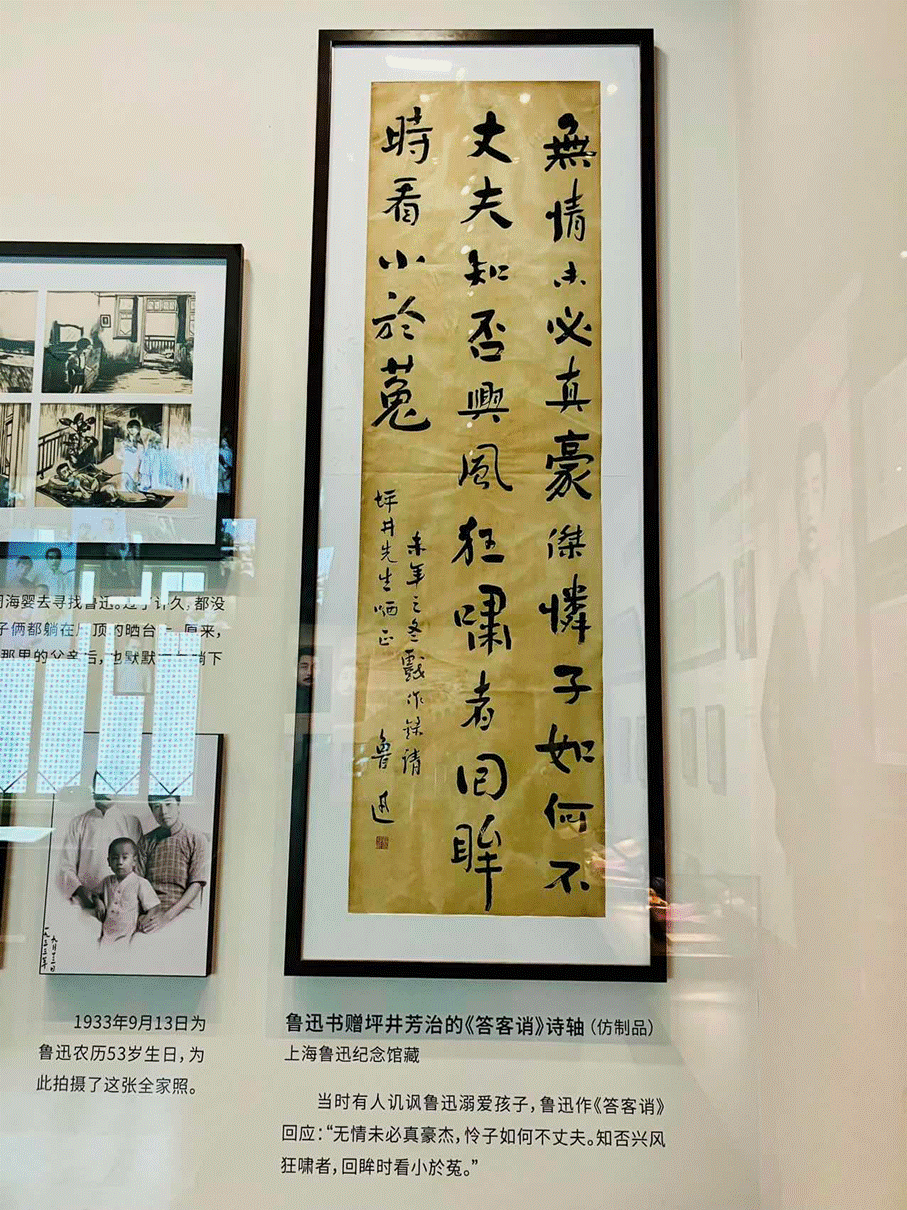 無情未必真豪傑憐子如何不
丈夫知否興風狂嘯者回眸
時看小於菟
未年之冬戲作錄請
坪井先生哂正
魯迅
海婴去寻找鲁迅。过了许久,都没
子俩都躺在屋顶的晒台上。原来,
那里的父亲后,也默默
躺下
一九三三年
九月十三日
1933年9月13日为
鲁迅农历53岁生日,为
此拍摄了这张全家照。
鲁迅书赠坪井芳治的《答客诮》诗轴(仿制品)
上海鲁迅纪念馆藏
当时有人讥讽鲁迅溺爱孩子,鲁迅作《答客诮》
回应:“无情未必真豪杰,怜子如何不丈夫。知否兴风
狂啸者,回眸时看小於菟。”